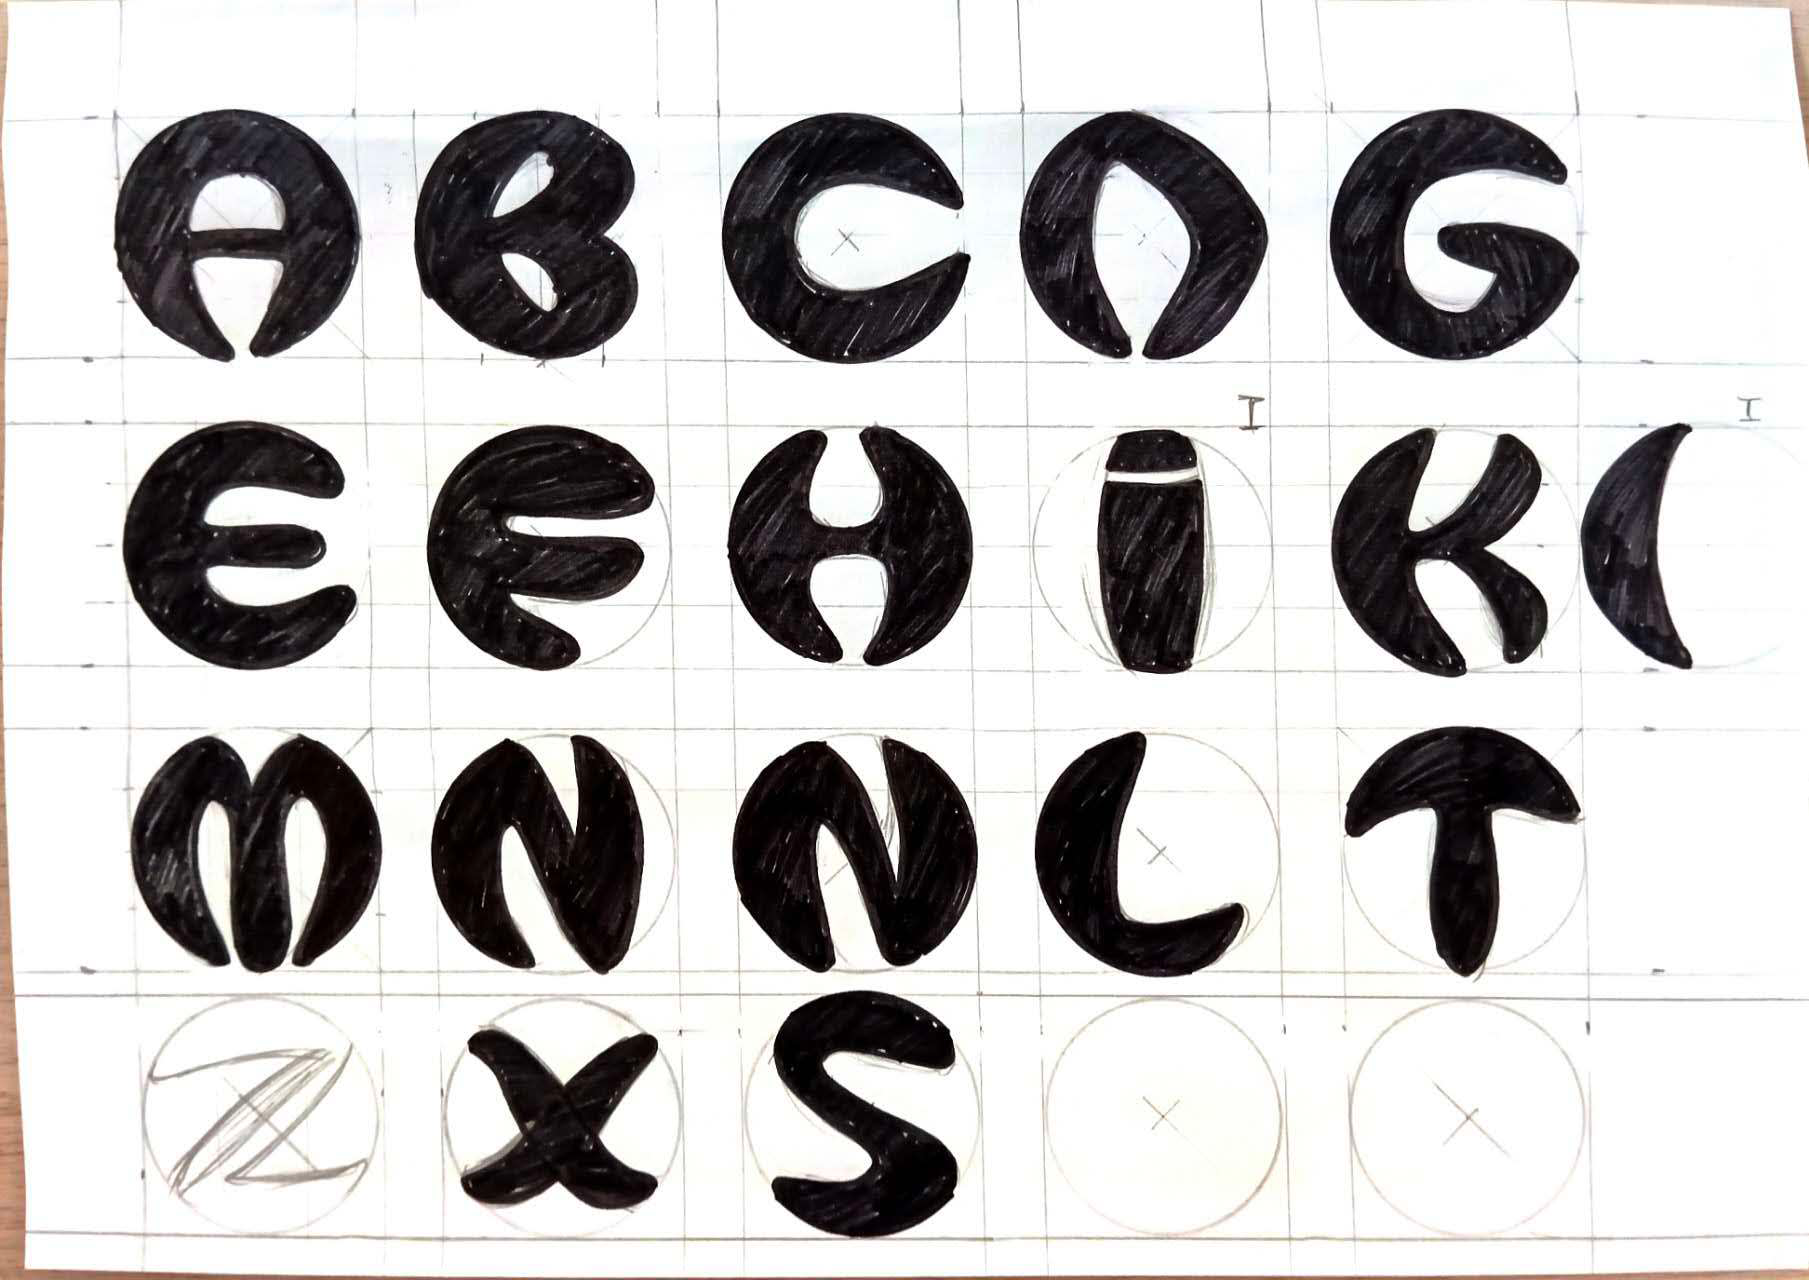 A B C G
I I
E F H İ K I
M N N L T
Z X S